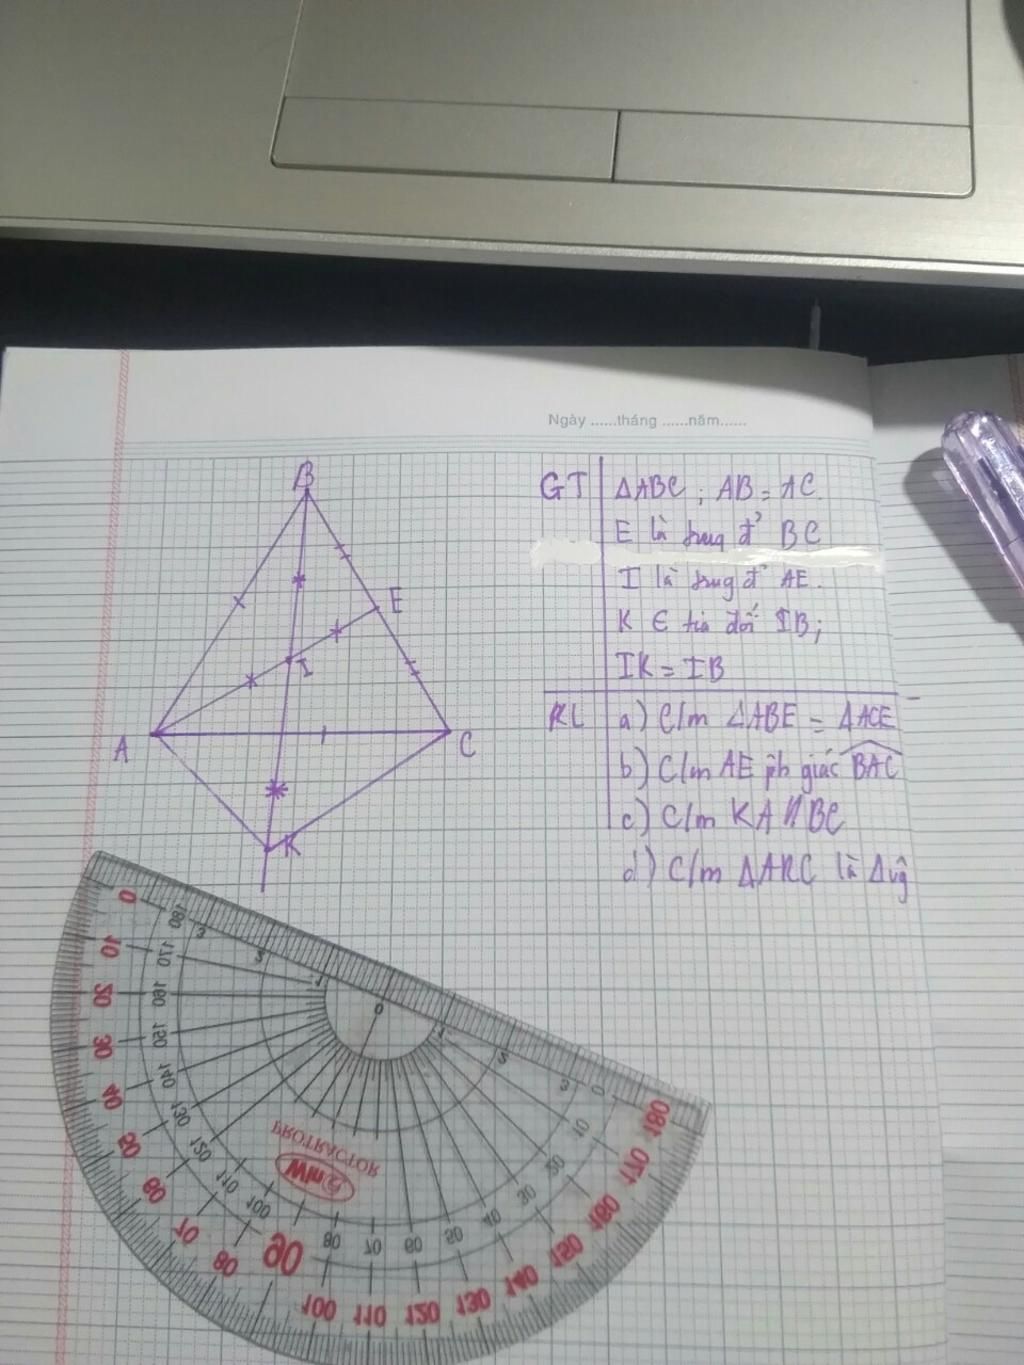 Ngày ......tháng ......năm......
B
E
I
A
C
K
GT ΔABC ; AB = AC
E là trung đ' BC
I là trung đ' AE.
K ∈ tia đối IB;
IK = IB
KL a) C/m ΔABE = ΔACE
b) C/m AE ph giác BAC
c) C/m KA // BC
d) C/m ΔAKC là Δvg
0 10 20 30 40 50 60 70 80 90 100 110 120 130 140 150 160 170 180
180 170 160 150 140 130 120 110 100 80 70 60 50 40 30
PROTRACTOR
Win